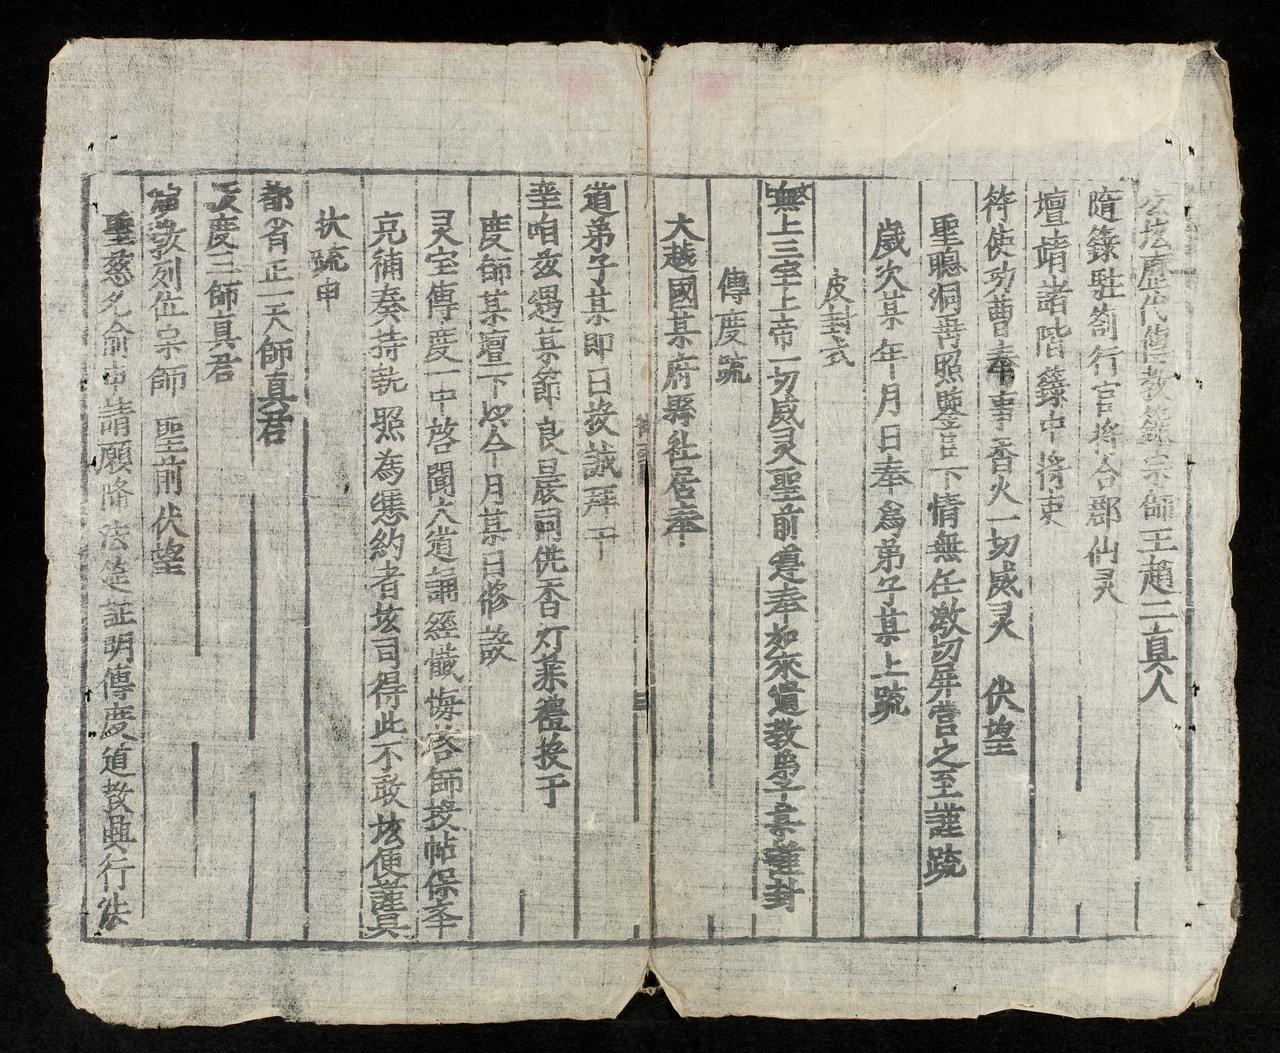 玄坛歷代傳教籙宗師王趙二真人
隨籙駐劄行官將合郡仙灵
壇靖諸階籙中將吏
符使功曹奉事香火一切威灵　伏望
聖聰洞垂照鑒臣下情無任激切屏營之至謹疏
歲次某年月日奉為弟子某上疏
皮封式
無上三宝上帝一切威灵聖前　奉如來遺教弟子某謹封
傳度疏
大越國某府縣社居奉
道弟子某即日投誠拜干
坐咱茲遇某節良辰司供香灯菲禮投于
度師某壇下恭今月某日修設
灵宝傳度一中啓聞大道誦經懺悔啓師授帖保奉
充補奏持執照為憑約者玆司得此不敢玆便謹具
状疏申
都省正一天師真君
天慶三師真君
演教列位宗師　聖前伏望
聖慈允俞申請願降法筵証明傳度道教興行法